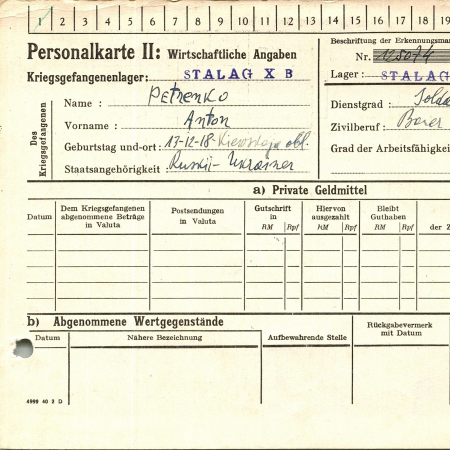 1 2 3 4 5 6 7 8 9 10 11 12 13 14 15 16 17 18 19
Personalkarte II: Wirtschaftliche Angaben
Kriegsgefangenenlager: STALAG X B
Des Kriegsgefangenen
Name: Petrenko
Vorname: Anton
Geburtstag und -ort: 13-12-18- Kiewskaja obl.
Staatsangehörigkeit: Russki-Ukrainer
Beschriftung der Erkennungsmar
Nr. 125074
Lager: STALAG
Dienstgrad: Solda
Zivilberuf:
Grad der Arbeitsfähigkei
a) Private Geldmittel
Datum
Dem Kriegsgefangenen abgenommene Beträge in Valuta
Postsendungen in Valuta
Gutschrift in
RM Rpf
Hiervon ausgezahlt
RM Rpf
Bleibt Guthaben
RM Rpf
der Z
b) Abgenommene Wertgegenstände
Datum
Nähere Bezeichnung
Aufbewahrende Stelle
Rückgabevermerk mit Datum
4999 40 2 D